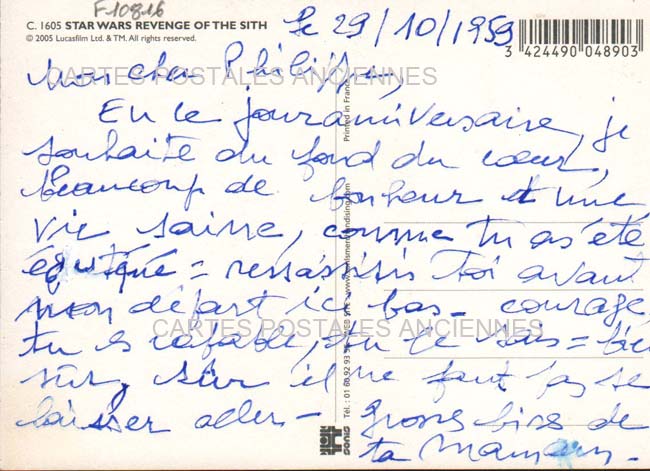 F10816
C. 1605 STAR WARS REVENGE OF THE SITH
© 2005 Lucasfilm Ltd. & TM. All rights reserved.
le 29/10/1959
3 424490 048903
Mon cher Philippe,
CARTES POSTALES ANCIENNES
En le jour anniversaire, je
souhaite du fond du cœur,
beaucoup de bonheur et une
vie saine, comme tu as été
éduqué = ressaisis toi avant
mon départ ici bas - courage,
CARTES POSTALES ANCIENNES
tu es capable, tu le sais = bien
sûr, sûr il ne faut pas se
laisser aller - Grosses bises de
ta Maman -
Printed in France
SONIS